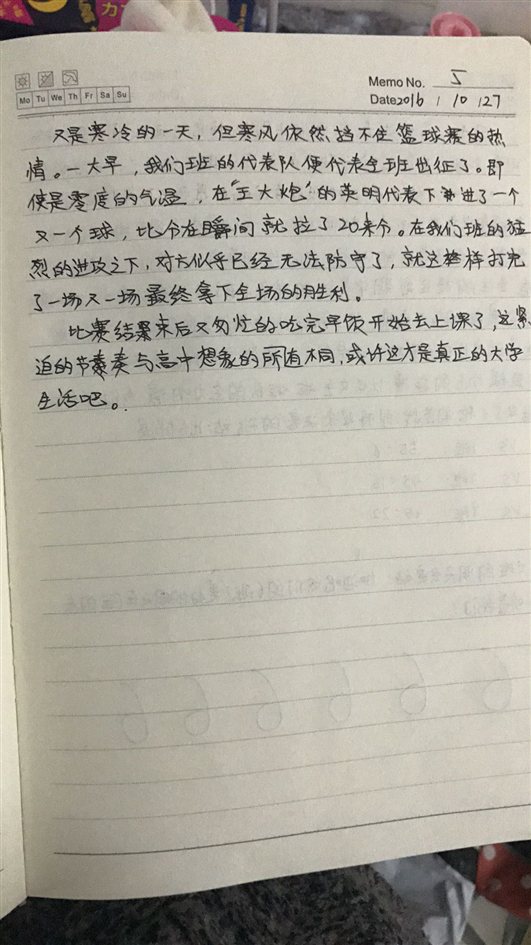 Memo No. 5
Mo Tu We Th Fr Sa Su
Date 2016 / 10 / 27
又是寒冷的一天，但寒风依然挡不住篮球赛的热
情。一大早，我们班的代表队便代表全班出征了。即
使是零度的气温，在“王大炮”的英明代表下进了一个
又一个球，比分在瞬间就拉了20来分。在我们班的猛
烈的进攻之下，对方似乎已经无法防守了，就这样打完
了一场又一场最终拿下全场的胜利。
比赛结束后又匆忙的吃完早饭开始去上课了，这紧
迫的节奏与高中想象的所有不同，或许这才是真正的大学
生活吧。